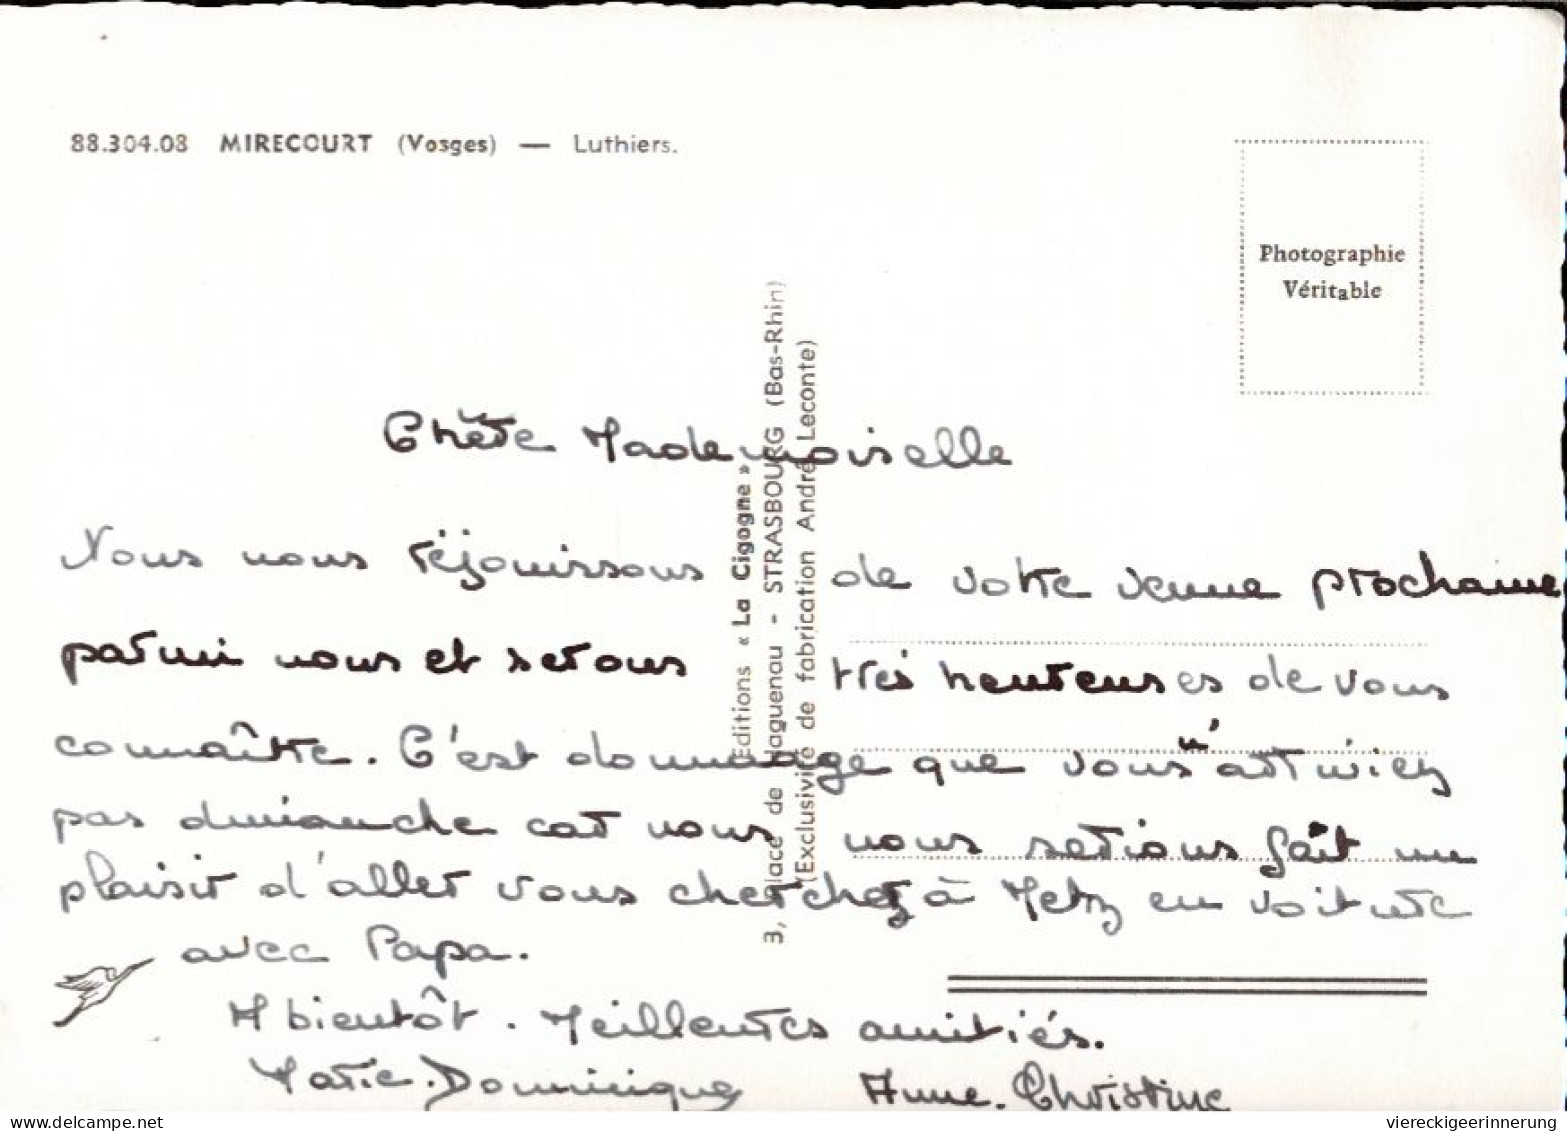 88.304.08 MIRECOURT (Vosges) — Luthiers.
Photographie
Véritable
Editions « La Cigogne »
3, place de Haguenau - STRASBOURG (Bas-Rhin)
(Exclusivité de fabrication André Leconte)
Chère Mademoiselle
Nous nous réjouissons de votre venue prochaine
parmi nous et serons très heureuses de vous
connaître. C'est dommage que vous n'arriviez
pas dimanche car nous nous serions fait un
plaisir d'aller vous chercher à Metz en voiture
avec Papa.
A bientôt. Meilleures amitiés.
Marie-Dominique Anne-Christine
delcampe.net
viereckigeerinnerung